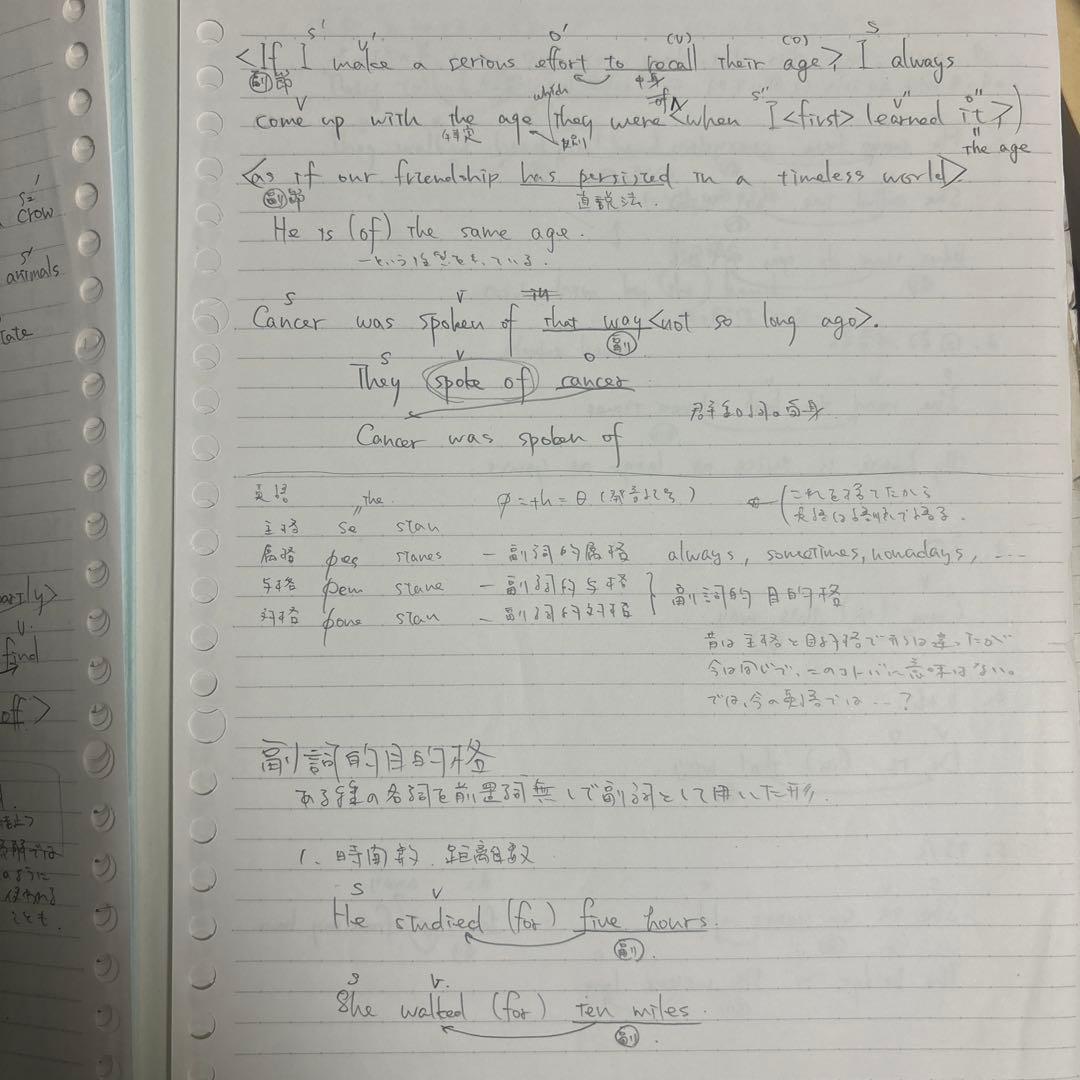 S' V' O' (V) (O) S
<If I make a serious effort to recall their age>, I always
副節 中身
V which of S'' V'' O''
come up with the age (they were <when I <first> learned it>)
特定 " the age
<as if our friendship has persisted in a timeless world>
副節 直説法.
He is (of) the same age.
S V
Cancer was spoken of that way <not so long ago>.
副
S V O
They spoke of cancer
群動詞の受身
Cancer was spoken of
英語 " the. þ = th = θ (発音記号) ← (これを捨てたから
主格 se stan
属格 þes stanes — 副詞的属格 always, sometimes, nonadays, ...
与格 þem stane — 副詞的与格 } 副詞的目的格
対格 þone stan — 副詞的対格
昔は主格と目的格で形は違ったが
今は同じで、このコトバに意味はない。
では、今の英語では ... ?
副詞的目的格
ある種の名詞を前置詞無しで副詞として用いた形.
1. 時間数. 距離数
S V
He studied (for) five hours.
副.
S V.
She walked (for) ten miles.
副.
S'
crow
S'
animals
tate
V.
find
off>